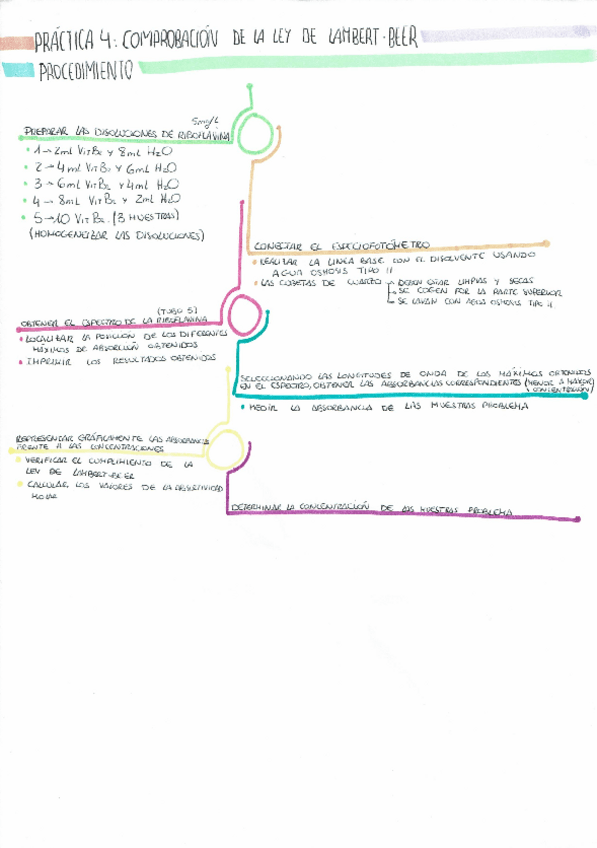 PRÁCTICA 4: COMPROBACIÓN DE LA LEY DE LAMBERT-BEER
PROCEDIMIENTO
5mg/L
PREPARAR LAS DISOLUCIONES DE RIBOFLAVINA
1→2mL Vit B₂ y 8mL H₂O
2→4mL Vit B₂ y 6mL H₂O
3→6mL Vit B₂ y 4mL H₂O
4→8mL Vit B₂ y 2mL H₂O
5→10 Vit B₂. (3 MUESTRAS)
(HOMOGENEIZAR LAS DISOLUCIONES)
CONECTAR EL ESPECTOFOTÓMETRO
REALIZAR LA LINEA BASE CON EL DISOLVENTE USANDO
AGUA OSMOSIS TIPO II
LAS CUBETAS DE CUARZO
DEBEN ESTAR LIMPIAS Y SECAS
SE COGEN POR LA PARTE SUPERIOR
SE LAVAN CON AGUA OSMOSIS TIPO II.
(TUBO 5)
OBTENER EL ESPECTRO DE LA RIBOFLAVINA
LOCALIZAR LA POSICIÓN DE LOS DIFERENTES
MÁXIMOS DE ABSORCIÓN OBTENIDOS
IMPRIMIR LOS RESULTADOS OBTENIDOS
SELECCIONANDO LAS LONGITUDES DE ONDA DE LOS MÁXIMOS OBTENIDOS
EN EL ESPECTRO, OBTENER LAS ABSORBANCIAS CORRESPONDIENTES (MENOR A MAYOR
CONCENTRACIÓN)
MEDIR LA ABSORBANCIA DE LAS MUESTRAS PROBLEMA
REPRESENTAR GRÁFICAMENTE LAS ABSORBANCIA
FRENTE A LAS CONCENTRACIONES
VERIFICAR EL CUMPLIMIENTO DE LA
LEY DE LAMBERT-BEER
CALCULAR LOS VALORES DE LA ABSORTIVIDAD
MOLAR
DETERMINAR LA CONCENTRACIÓN DE LAS MUESTRAS PROBLEMA